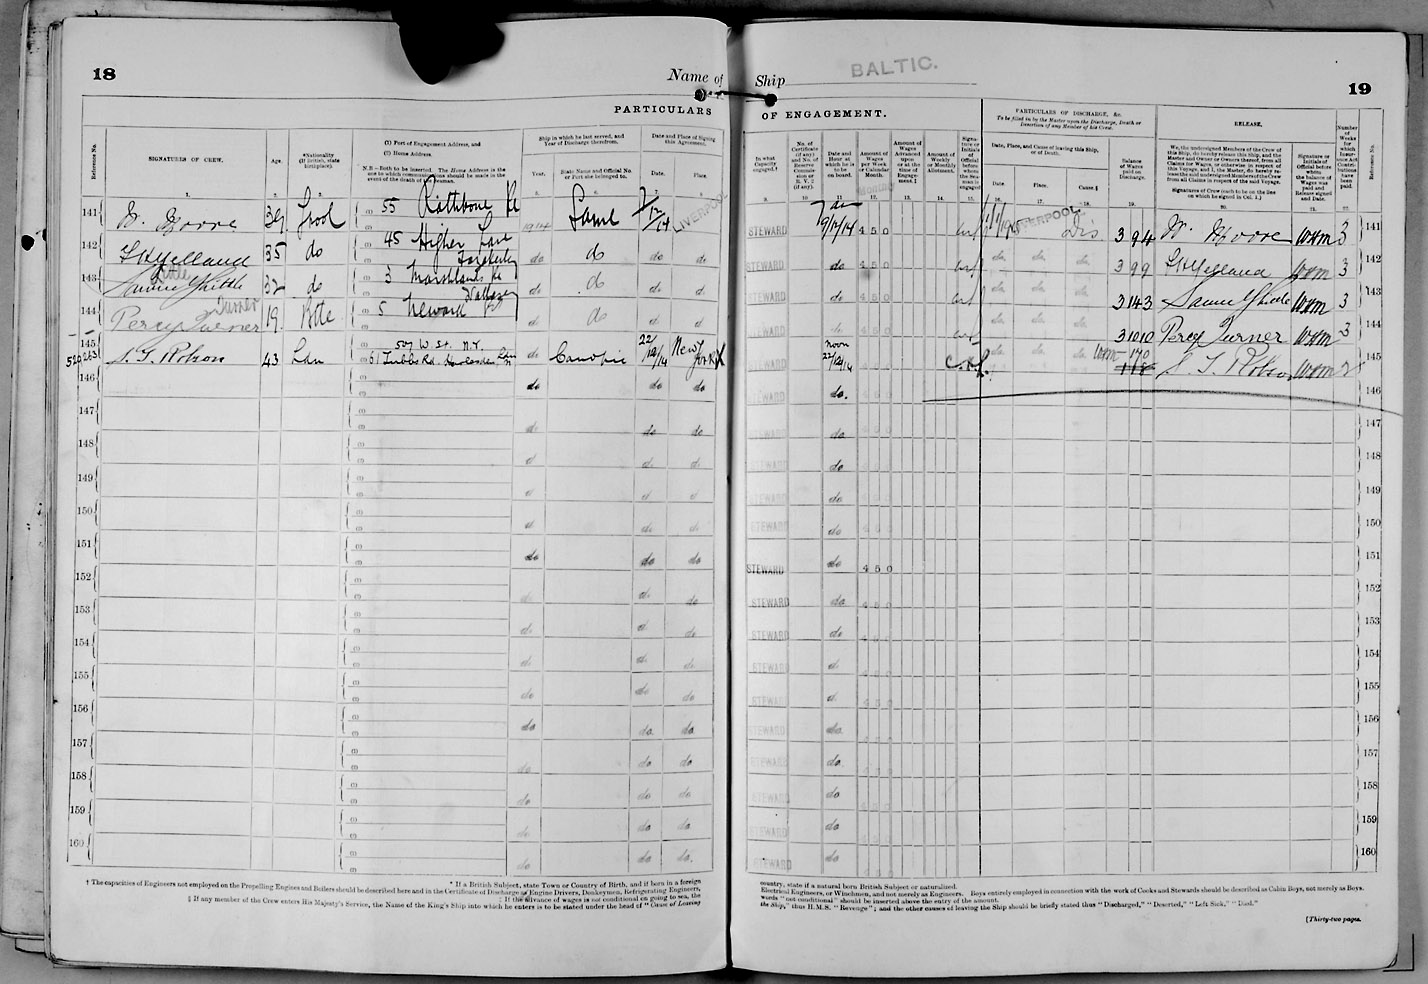 18
Name of Ship BALTIC.
19
PARTICULARS OF ENGAGEMENT.
PARTICULARS OF DISCHARGE, &c.
To be filled in by the Master upon the Discharge, Death or Desertion of any Member of his Crew.
RELEASE.
Reference No.
SIGNATURES OF CREW.
Age.
*Nationality (If British, state birthplace).
(1) Port of Engagement Address, and
(2) Home Address.
N.B.—Both to be inserted. The Home Address is the one to which communications should be made in the event of the death of the seaman.
Ship in which he last served, and Year of Discharge therefrom.
Year.
State Name and Official No. or Port she belonged to.
Date and Place of Signing this Agreement.
Date.
Place.
In what Capacity engaged.†
No. of Certificate (if any) and No. of Reserve Commission or R. V. 2 (if any).
Date and Hour at which he is to be on board.
Amount of Wages per Week or Calendar Month.
Amount of Wages Advanced upon or at the time of Engagement.‡
Amount of Weekly or Monthly Allotment.
Signature or Initials of Official before whom the Seaman is engaged
Date, Place, and Cause of leaving this Ship, or of Death.
Date.
Place.
Cause.§
Balance of Wages paid on Discharge.
We, the undersigned Members of the Crew of this Ship, do hereby release this Ship, and the Master and Owner or Owners thereof, from all Claims for Wages, or otherwise in respect of this Voyage, and I, the Master, do hereby release the undersigned Members of the Crew from all Claims in respect of the said Voyage.
Signatures of Crew (each to be on the line on which he signed in Col. 1.)
Signature or Initials of Official before whom the balance of Wages was paid and Release signed and Date.
Number of Weeks for which Insurance Act Contributions have been paid.
Reference No.
141 W. Moore 39 Lpool 55 Rathbone Rd 1914 Same 7/12/14 LIVERPOOL STEWARD 7 am 9/12/14 4 5 0 LIVERPOOL Dis 3 9 4 W. Moore WHM 3 141
142 35 do 45 Higher Lane Fazakerley do do do do STEWARD do 4 5 0 do. do. do. 3 9 9 WHM 3 142
143 32 do 3 do do do do STEWARD do 4 5 0 do. do. do. 3 14 3 WHM 3 143
144 Percy Turner Turner 19 5 Newark do do d. STEWARD do 4 5 0 do. do. do. 3 10 10 Percy Turner WHM 3 144
145 S. T. Robson 43 Lon 507 W St. N.Y. 61 Tubbs Rd Harlesden do Canopic 22/12/14 New York STEWARD noon 22/12/14 do. do. do. S. T. Robson WHM 2 145
146 do do do STEWARD do. 4 5 0 146
147 do do do STEWARD do 147
148 d. do d. STEWARD do 148
149 d d d. STEWARD do 149
150 d do d. STEWARD do 150
151 do do do STEWARD do 4 5 0 151
152 do. d. do STEWARD do 4 5 0 152
153 do. d. do. STEWARD do 153
154 do. d. do. STEWARD do 154
155 do do do STEWARD d. 155
156 do do. do STEWARD do 156
157 do. do do STEWARD do. 157
158 do do do STEWARD do 158
159 do. do do STEWARD do 159
160 do do do. STEWARD do 160
† The capacities of Engineers not employed on the Propelling Engines and Boilers should be described here and in the Certificate of Discharge as Engine Drivers, Donkeymen, Refrigerating Engineers,
Electrical Engineers, or Winchmen, and not merely as Engineers. Boys entirely employed in connection with the work of Cooks and Stewards should be described as Cabin Boys, not merely as Boys.
* If a British Subject, state Town or Country of Birth, and if born in a foreign country, state if a natural born British Subject or naturalized.
‡ If the advance of wages is not conditional on going to sea, the words "not conditional" should be inserted above the entry of the amount.
§ If any member of the Crew enters His Majesty's Service, the Name of the King's Ship into which he enters is to be stated under the head of "Cause of Leaving the Ship," thus H.M.S. "Revenge"; and the other causes of leaving the Ship should be briefly stated thus "Discharged," "Deserted," "Left Sick," "Died."
[Thirty-two pages.